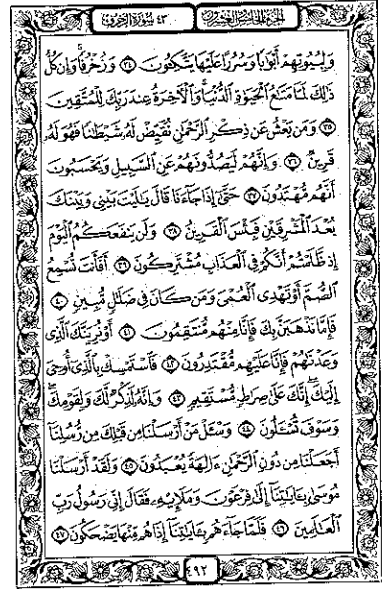 الجزء الخامس والعشرون
٤٣ سورة الزخرف
وَلِبُيُوتِهِمْ أَبْوَٰبًا وَسُرُرًا عَلَيْهَا يَتَّكِـُٔونَ ٣٤ وَزُخْرُفًا وَإِن كُلُّ
ذَٰلِكَ لَمَّا مَتَـٰعُ ٱلْحَيَوٰةِ ٱلدُّنْيَا وَٱلْـَٔاخِرَةُ عِندَ رَبِّكَ لِلْمُتَّقِينَ
٣٥ وَمَن يَعْشُ عَن ذِكْرِ ٱلرَّحْمَـٰنِ نُقَيِّضْ لَهُۥ شَيْطَـٰنًا فَهُوَ لَهُۥ
قَرِينٌ ٣٦ وَإِنَّهُمْ لَيَصُدُّونَهُمْ عَنِ ٱلسَّبِيلِ وَيَحْسَبُونَ
أَنَّهُم مُّهْتَدُونَ ٣٧ حَتَّىٰٓ إِذَا جَآءَنَا قَالَ يَـٰلَيْتَ بَيْنِى وَبَيْنَكَ
بُعْدَ ٱلْمَشْرِقَيْنِ فَبِئْسَ ٱلْقَرِينُ ٣٨ وَلَن يَنفَعَكُمُ ٱلْيَوْمَ
إِذ ظَّلَمْتُمْ أَنَّكُمْ فِى ٱلْعَذَابِ مُشْتَرِكُونَ ٣٩ أَفَأَنتَ تُسْمِعُ
ٱلصُّمَّ أَوْ تَهْدِى ٱلْعُمْىَ وَمَن كَانَ فِى ضَلَـٰلٍ مُّبِينٍ ٤٠
فَإِمَّا نَذْهَبَنَّ بِكَ فَإِنَّا مِنْهُم مُّنتَقِمُونَ ٤١ أَوْ نُرِيَنَّكَ ٱلَّذِى
وَعَدْنَـٰهُمْ فَإِنَّا عَلَيْهِم مُّقْتَدِرُونَ ٤٢ فَٱسْتَمْسِكْ بِٱلَّذِىٓ أُوحِىَ
إِلَيْكَ إِنَّكَ عَلَىٰ صِرَٰطٍ مُّسْتَقِيمٍ ٤٣ وَإِنَّهُۥ لَذِكْرٌ لَّكَ وَلِقَوْمِكَ
وَسَوْفَ تُسْـَٔلُونَ ٤٤ وَسْـَٔلْ مَنْ أَرْسَلْنَا مِن قَبْلِكَ مِن رُّسُلِنَآ
أَجَعَلْنَا مِن دُونِ ٱلرَّحْمَـٰنِ ءَالِهَةً يُعْبَدُونَ ٤٥ وَلَقَدْ أَرْسَلْنَا
مُوسَىٰ بِـَٔايَـٰتِنَآ إِلَىٰ فِرْعَوْنَ وَمَلَإِي۟هِۦ فَقَالَ إِنِّى رَسُولُ رَبِّ
ٱلْعَـٰلَمِينَ ٤٦ فَلَمَّا جَآءَهُم بِـَٔايَـٰتِنَآ إِذَا هُم مِّنْهَا يَضْحَكُونَ ٤٧
٤٩٢